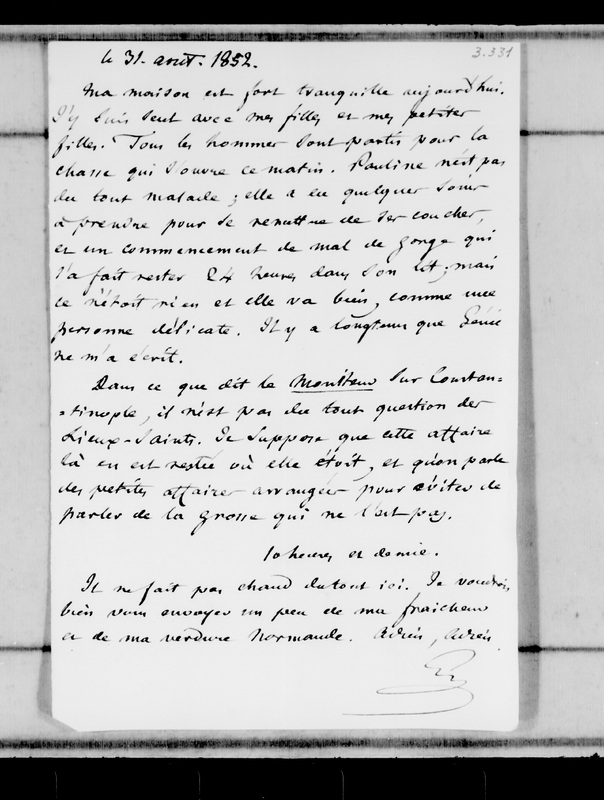 le 31. aout. 1852.
3.331
Ma maison est fort tranquille aujourd'hui.
J'y suis seul avec mes filles et mes petites
filles. Tous les hommes sont partis pour la
chasse qui s'ouvre ce matin. Pauline n'est pas
du tout malade ; elle a eu quelques soins
à prendre pour se remettre de ses couches,
et un commencement de mal de gorge qui
l'a fait rester 24 heures dans son lit ; mais
ce n'étoit rien et elle va bien, comme une
personne délicate. Il y a longtems que Génie
ne m'a écrit.
Dans ce que dit le Moniteur sur Constan=
=tinople, il n'est pas du tout question des
Lieux-Saints. Je suppose que cette affaire
là en est restée où elle étoit, et qu'on parle
des petites affaires arrangées pour éviter de
parler de la grosse qui ne l'est pas.
10 heures et demie.
Il ne fait pas chaud du tout ici. Je voudrois
bien vous envoyer un peu de ma fraicheur
et de ma verdure Normande. Adieu, Adieu.